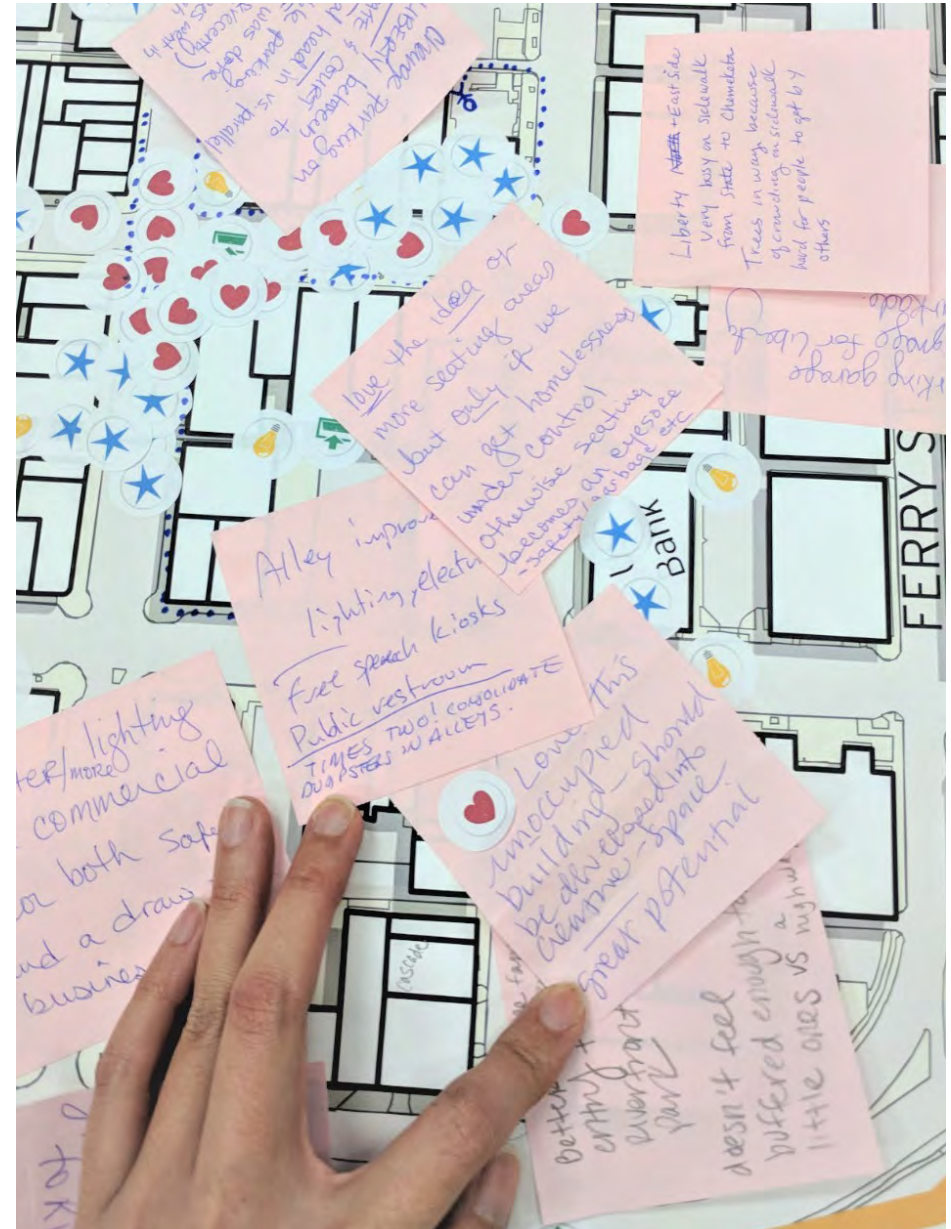 change Parking on
LIBERTY between
STATE & COURT to
head in vs. parallel
parking
was done
recently)
Liberty + East Side
Very busy on sidewalk
from State to Chemeketa
Trees in way because
of crowding on sidewalk
hard for people to get by
others
for Liberty
parking garage
love the idea of
more seating areas
but only if we
can get homelessness
under control
otherwise seating
becomes an eyesore
- safety/garbage etc
Bank
FERRY S
Alley improve
lighting, electr
Free speech kiosks
Public restroom
TIMES TWO! CONSOLIDATE
DUMPSTERS IN ALLEYS.
lighting
/more
commercial
both safe
and a draw
busines
Love this
unoccupied
building - should
be developed into
space
great potential
cascade
Better
entry
riverfront
park
doesn't feel
buffered enough
little ones vs highw